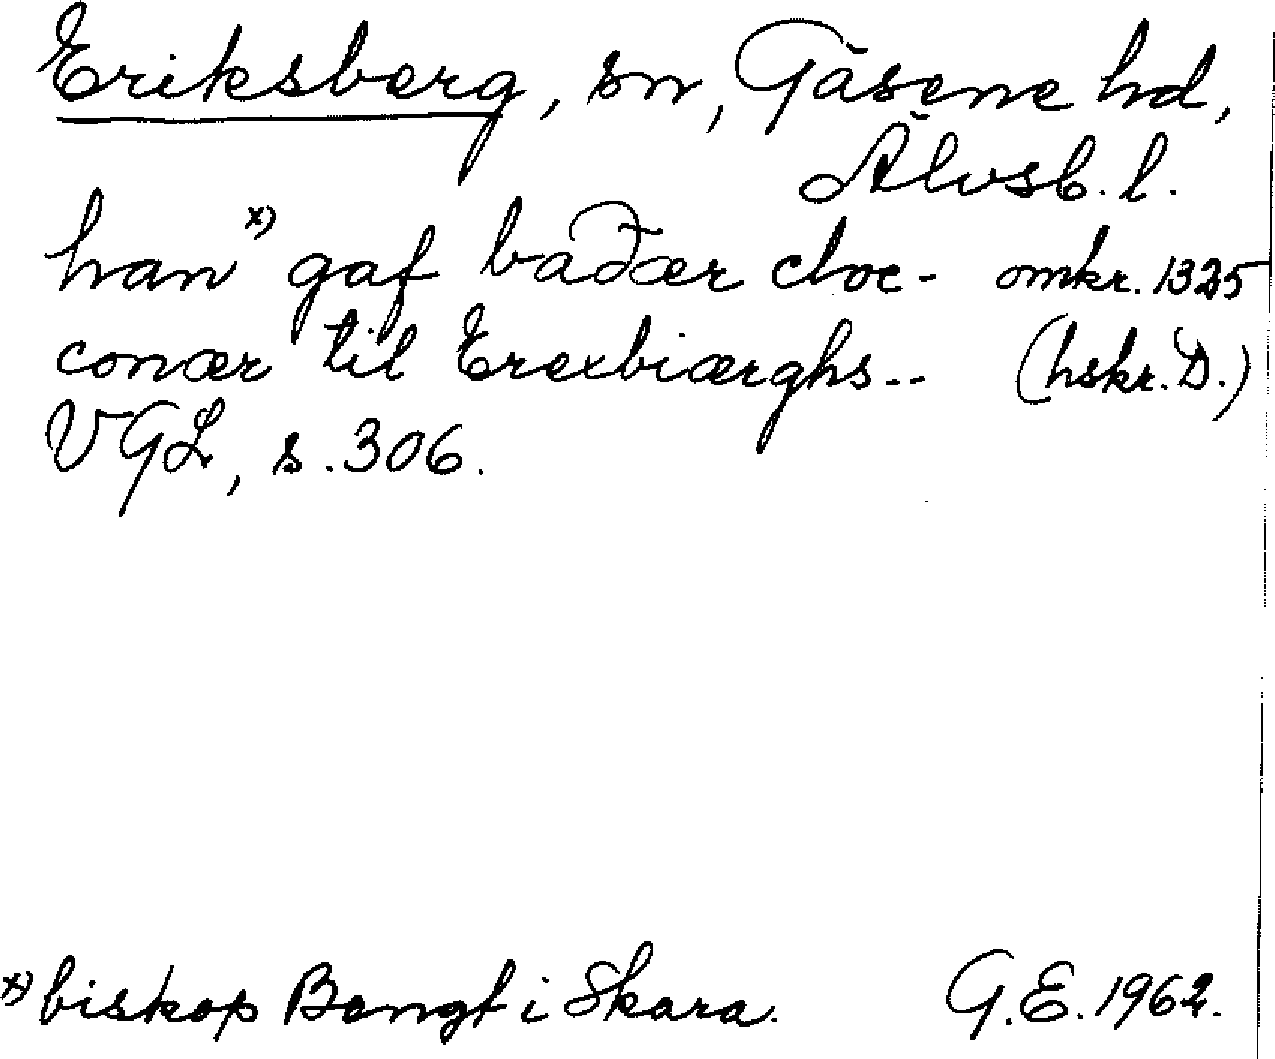 Eriksberg, sn, Gäsene hd,
Älvsb. l.
han x) gaf baðær cloc- omkr. 1325
conær til Erexbiærghs.. (hskr. D.)
VGL, s. 306.
x) biskop Bengt i Skara. G.E. 1962.